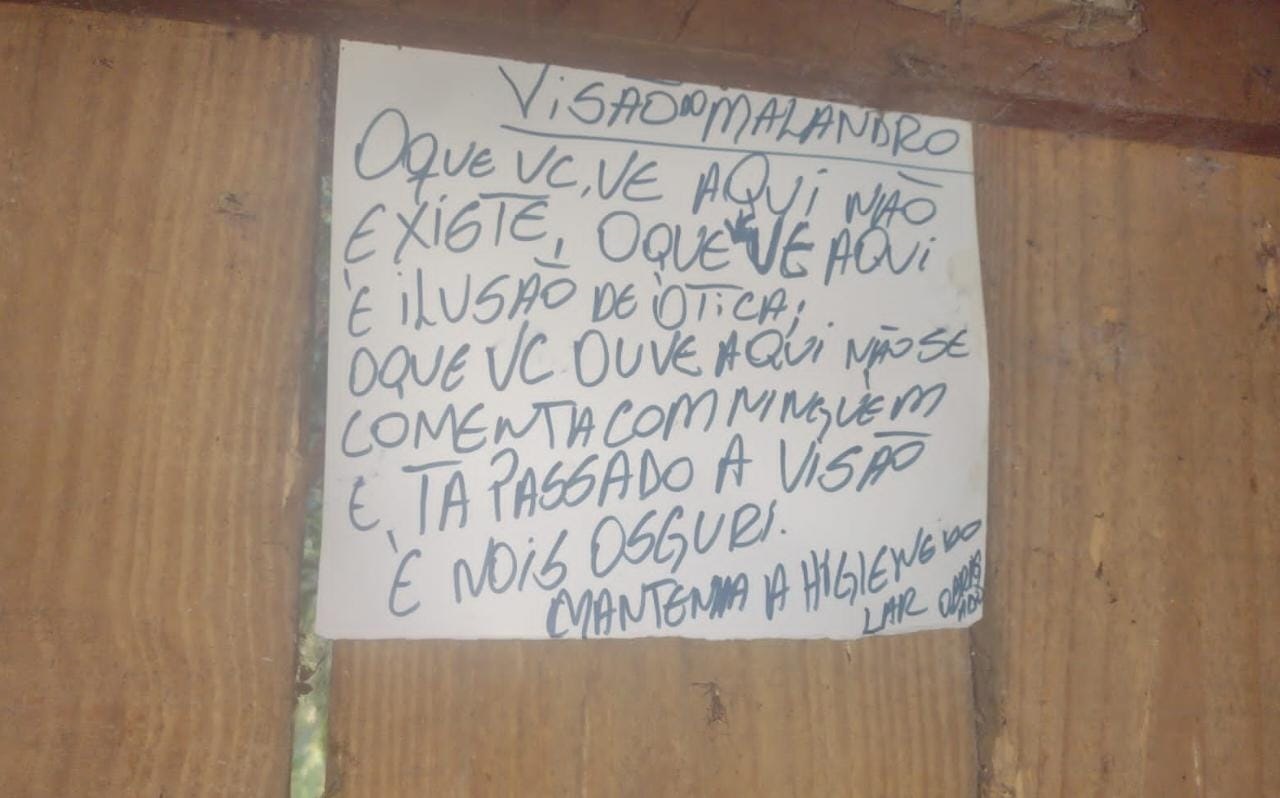 VISÃO DO MALANDRO
OQUE VC, VE AQUI NÃO
EXISTE, OQUE VE AQUI
È ILUSÃO DE ÒTICA;
OQUE VC OUVE AQUI NÃO SE
COMENTA COM NINGUÈM
E TA PASSADO A VISÃO
È NOIS OSGURI.
MANTENHA A HIGIENE DO
LAR OBRIG
ADO